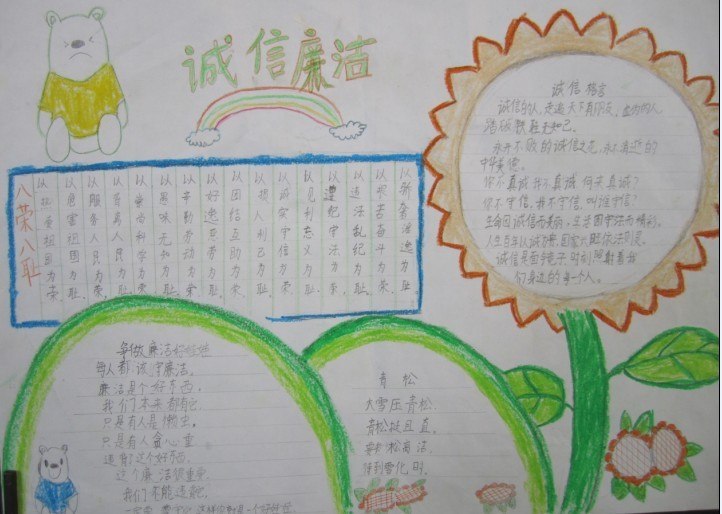 诚信廉洁
八荣八耻
以热爱祖国为荣,
以危害祖国为耻,
以服务人民为荣,
以背离人民为耻,
以崇尚科学为荣,
以愚昧无知为耻,
以辛勤劳动为荣,
以好逸恶劳为耻,
以团结互助为荣,
以损人利己为耻,
以诚实守信为荣,
以见利忘义为耻,
以遵纪守法为荣,
以违法乱纪为耻,
以艰苦奋斗为荣,
以骄奢淫逸为耻。
诚信格言
诚信的人,走遍天下有朋友,虚伪的人
踏破铁鞋无知己。
永开不败的诚信之花,永不消逝的
中华美德。
你不真诚我不真诚 何来真诚?
你不守信,我不守信,叫谁守信?
生命因诚信而美丽,生活因守法而精彩。
人生百年以诚为贵,国家大厦依法则灵。
诚信是面镜子 时刻照射着我
们身边的每一个人。
争做廉洁好娃娃
每人都该守廉洁。
廉洁是个好东西。
我们本来都有它
只是有人是懒虫。
只是有人贪心重
这个好东西。
这个廉洁很重要。
我们不能违
这样你就是一个好娃娃
青 松
大雪压青松,
青松挺且直。
要知松高洁,
待到雪化时。